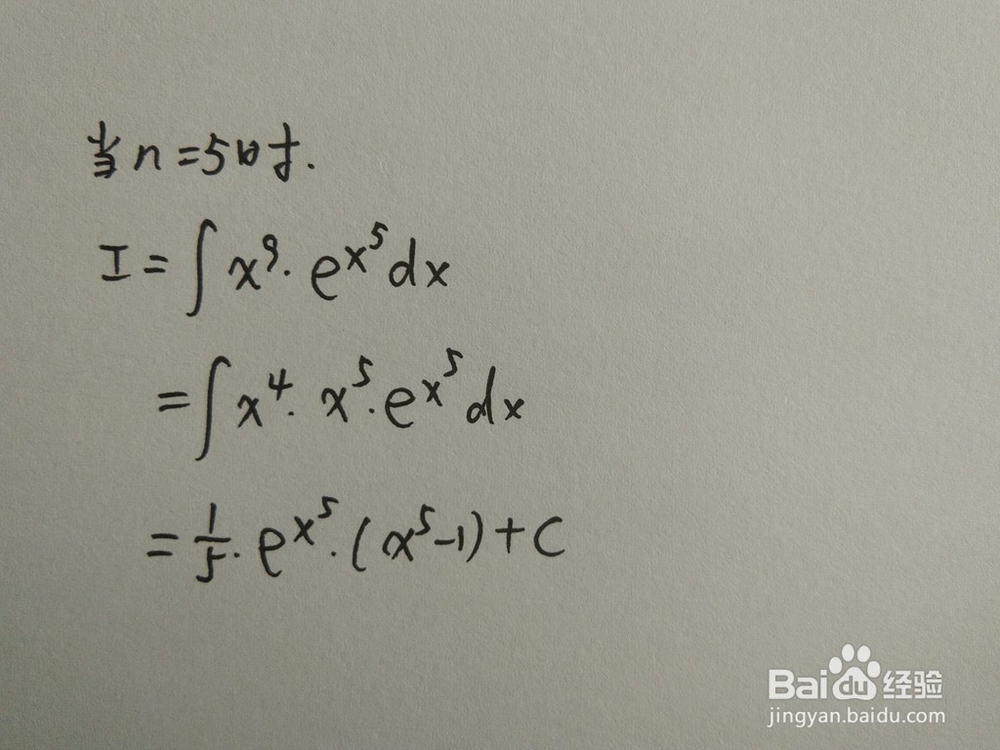 当n=5时.
I=∫x⁹·e^{x⁵}dx
=∫x⁴·x⁵·e^{x⁵}dx
=1/5·e^{x⁵}·(x⁵-1)+C
Baidu经验
jingyan.baidu.com